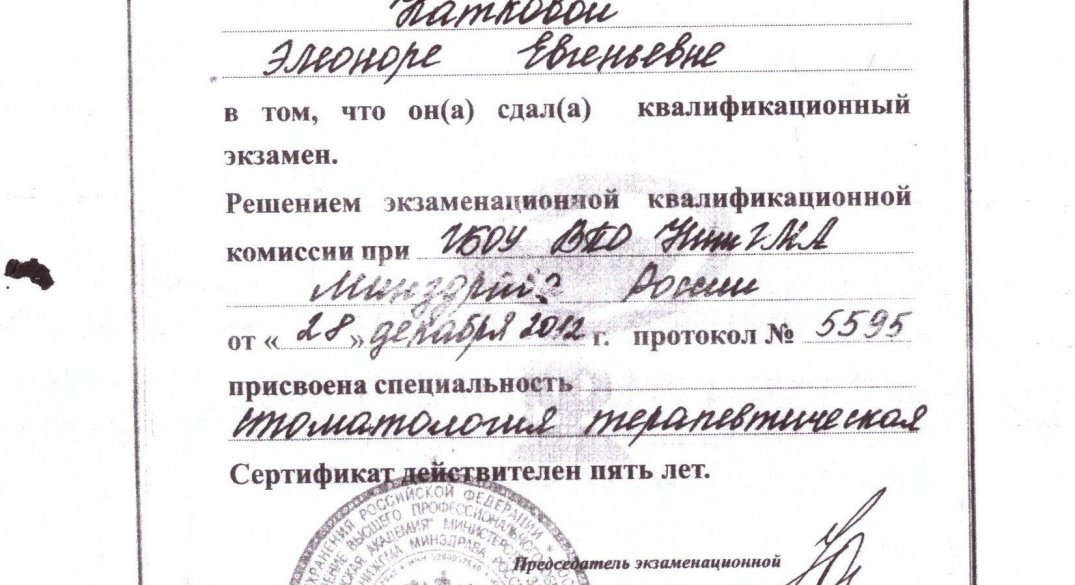 Элеоноре Евгеньевне
в том, что он(а) сдал(а) квалификационный
экзамен.
Решением экзаменационной квалификационной
комиссии при ГБОУ ВПО НижГМА
Минздрава России
от «28» декабря 2012 г. протокол № 5595
присвоена специальность
стоматология терапевтическая
Сертификат действителен пять лет.
ХРАНЕНИЯ РОССИЙСКОЙ ФЕДЕРАЦИИ
ВЫСШЕГО ПРОФЕССИОНАЛЬНОГО
АКАДЕМИЯ" МИНИСТЕР
МИНЗДРАВА
Председатель экзаменационной